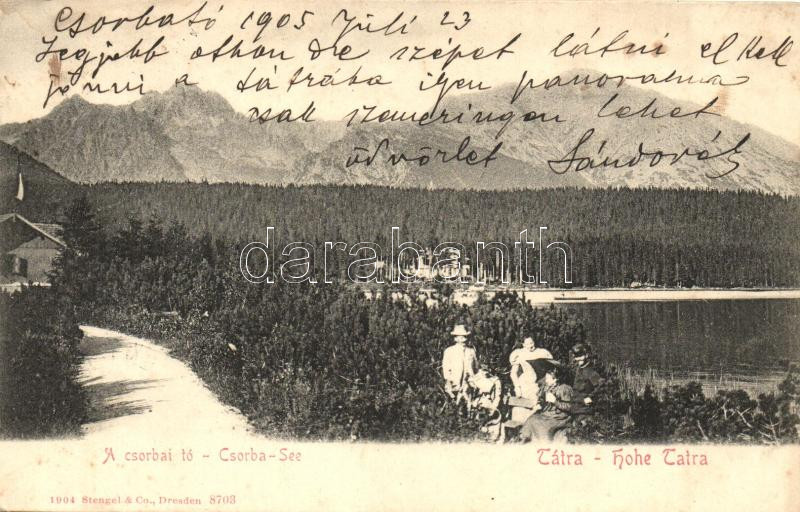 Csorbató 1905 Júli 23
Legjobb othon de szépet látni el kell
jönni a tátrába ijen panoráma
csak szemeringen lehet
üdvözlet Sándorék
darabanth.com
A csorbai tó - Csorba-See
Tátra - Hohe Tatra
1904 Stengel & Co., Dresden 8703